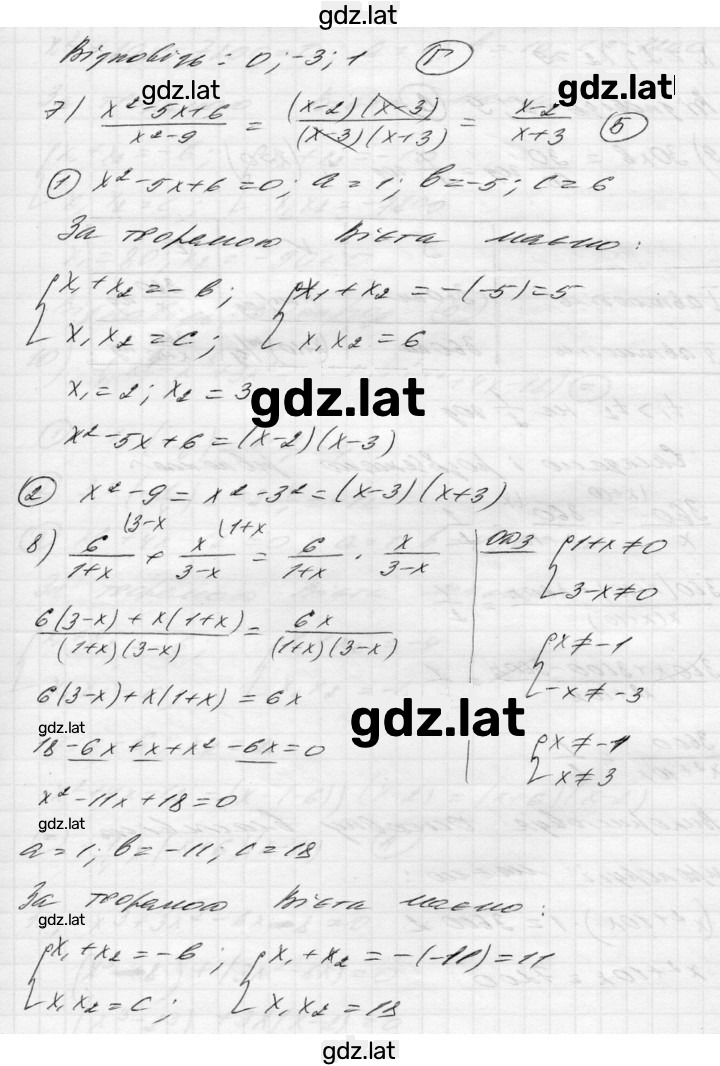 gdz.lat
Відповідь: 0; -3; 1 (Г)
gdz.lat
gdz.lat
7) (x²-5x+6)/(x²-9) = ((x-2)(x-3))/((x-3)(x+3)) = (x-2)/(x+3) (Б)
① x²-5x+6=0; a=1; b=-5; c=6
За теоремою Вієта маємо:
{x₁+x₂=-b; {x₁+x₂=-(-5)=5
{x₁x₂=c; {x₁x₂=6
x₁=2; x₂=3
gdz.lat
x²-5x+6=(x-2)(x-3)
② x²-9=x²-3²=(x-3)(x+3)
8) 6/(1+x) (3-x + x/(3-x) (1+x = 6/(1+x) · x/(3-x)
ОДЗ {1+x≠0
{3-x≠0
(6(3-x)+x(1+x))/((1+x)(3-x)) = 6x/((1+x)(3-x))
{x≠-1
{-x≠-3
6(3-x)+x(1+x)=6x
gdz.lat
gdz.lat
18-6x+x+x²-6x=0
{x≠-1
{x≠3
x²-11x+18=0
gdz.lat
a=1; b=-11; c=18
За теоремою Вієта маємо:
gdz.lat
{x₁+x₂=-b; {x₁+x₂=-(-11)=11
{x₁x₂=c; {x₁x₂=18
gdz.lat